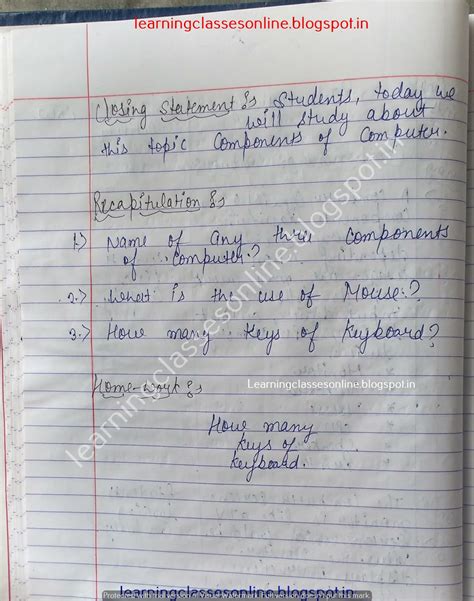 learningclassesonline.blogspot.in
Closing Statement :- Students, today we
will study about
this topic Components of Computer.
Recapitulation :-
1.) Name of any three components
of computer.?
2.) What is the use of Mouse.?
3.) How many keys of keyboard?
Learningclassesonline.blogspot.in
Home-work :-
How many
keys of
keyboard.
learningclassesonline.blogspot.in
learningclassesonline.blogspot.in